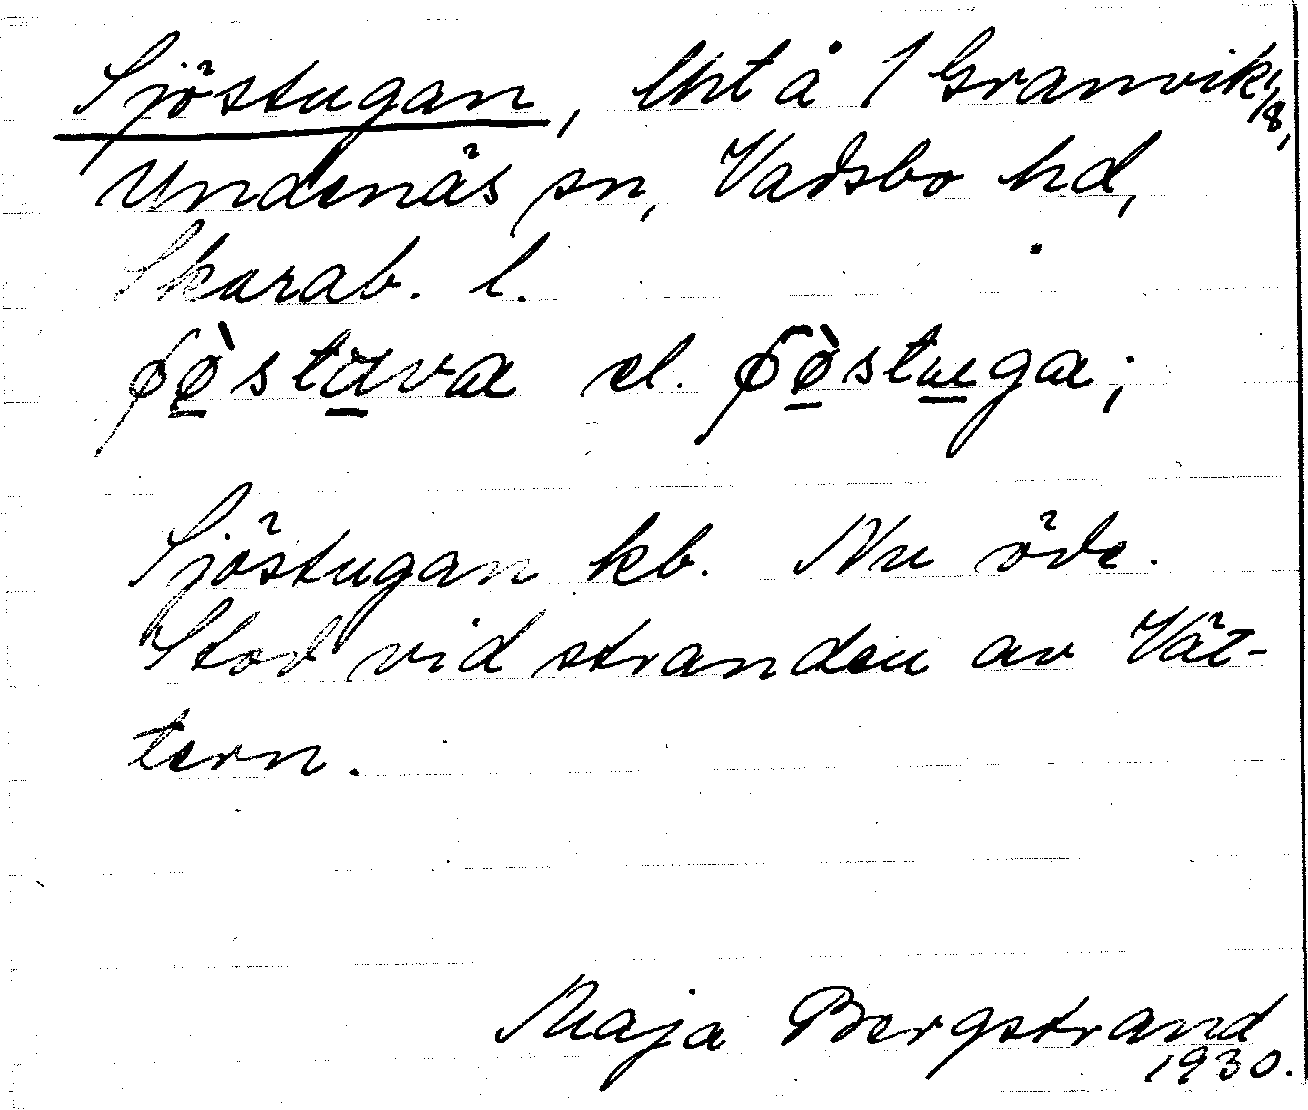 Sjöstugan, lht å 1 Granvik 1/8,
Undenäs sn, Vadsbo hd,
Skarab. l.
el.
Sjöstugan kb. Nu öde.
Stod vid stranden av Vät-
tern.
Maja Bergstrand
1930.